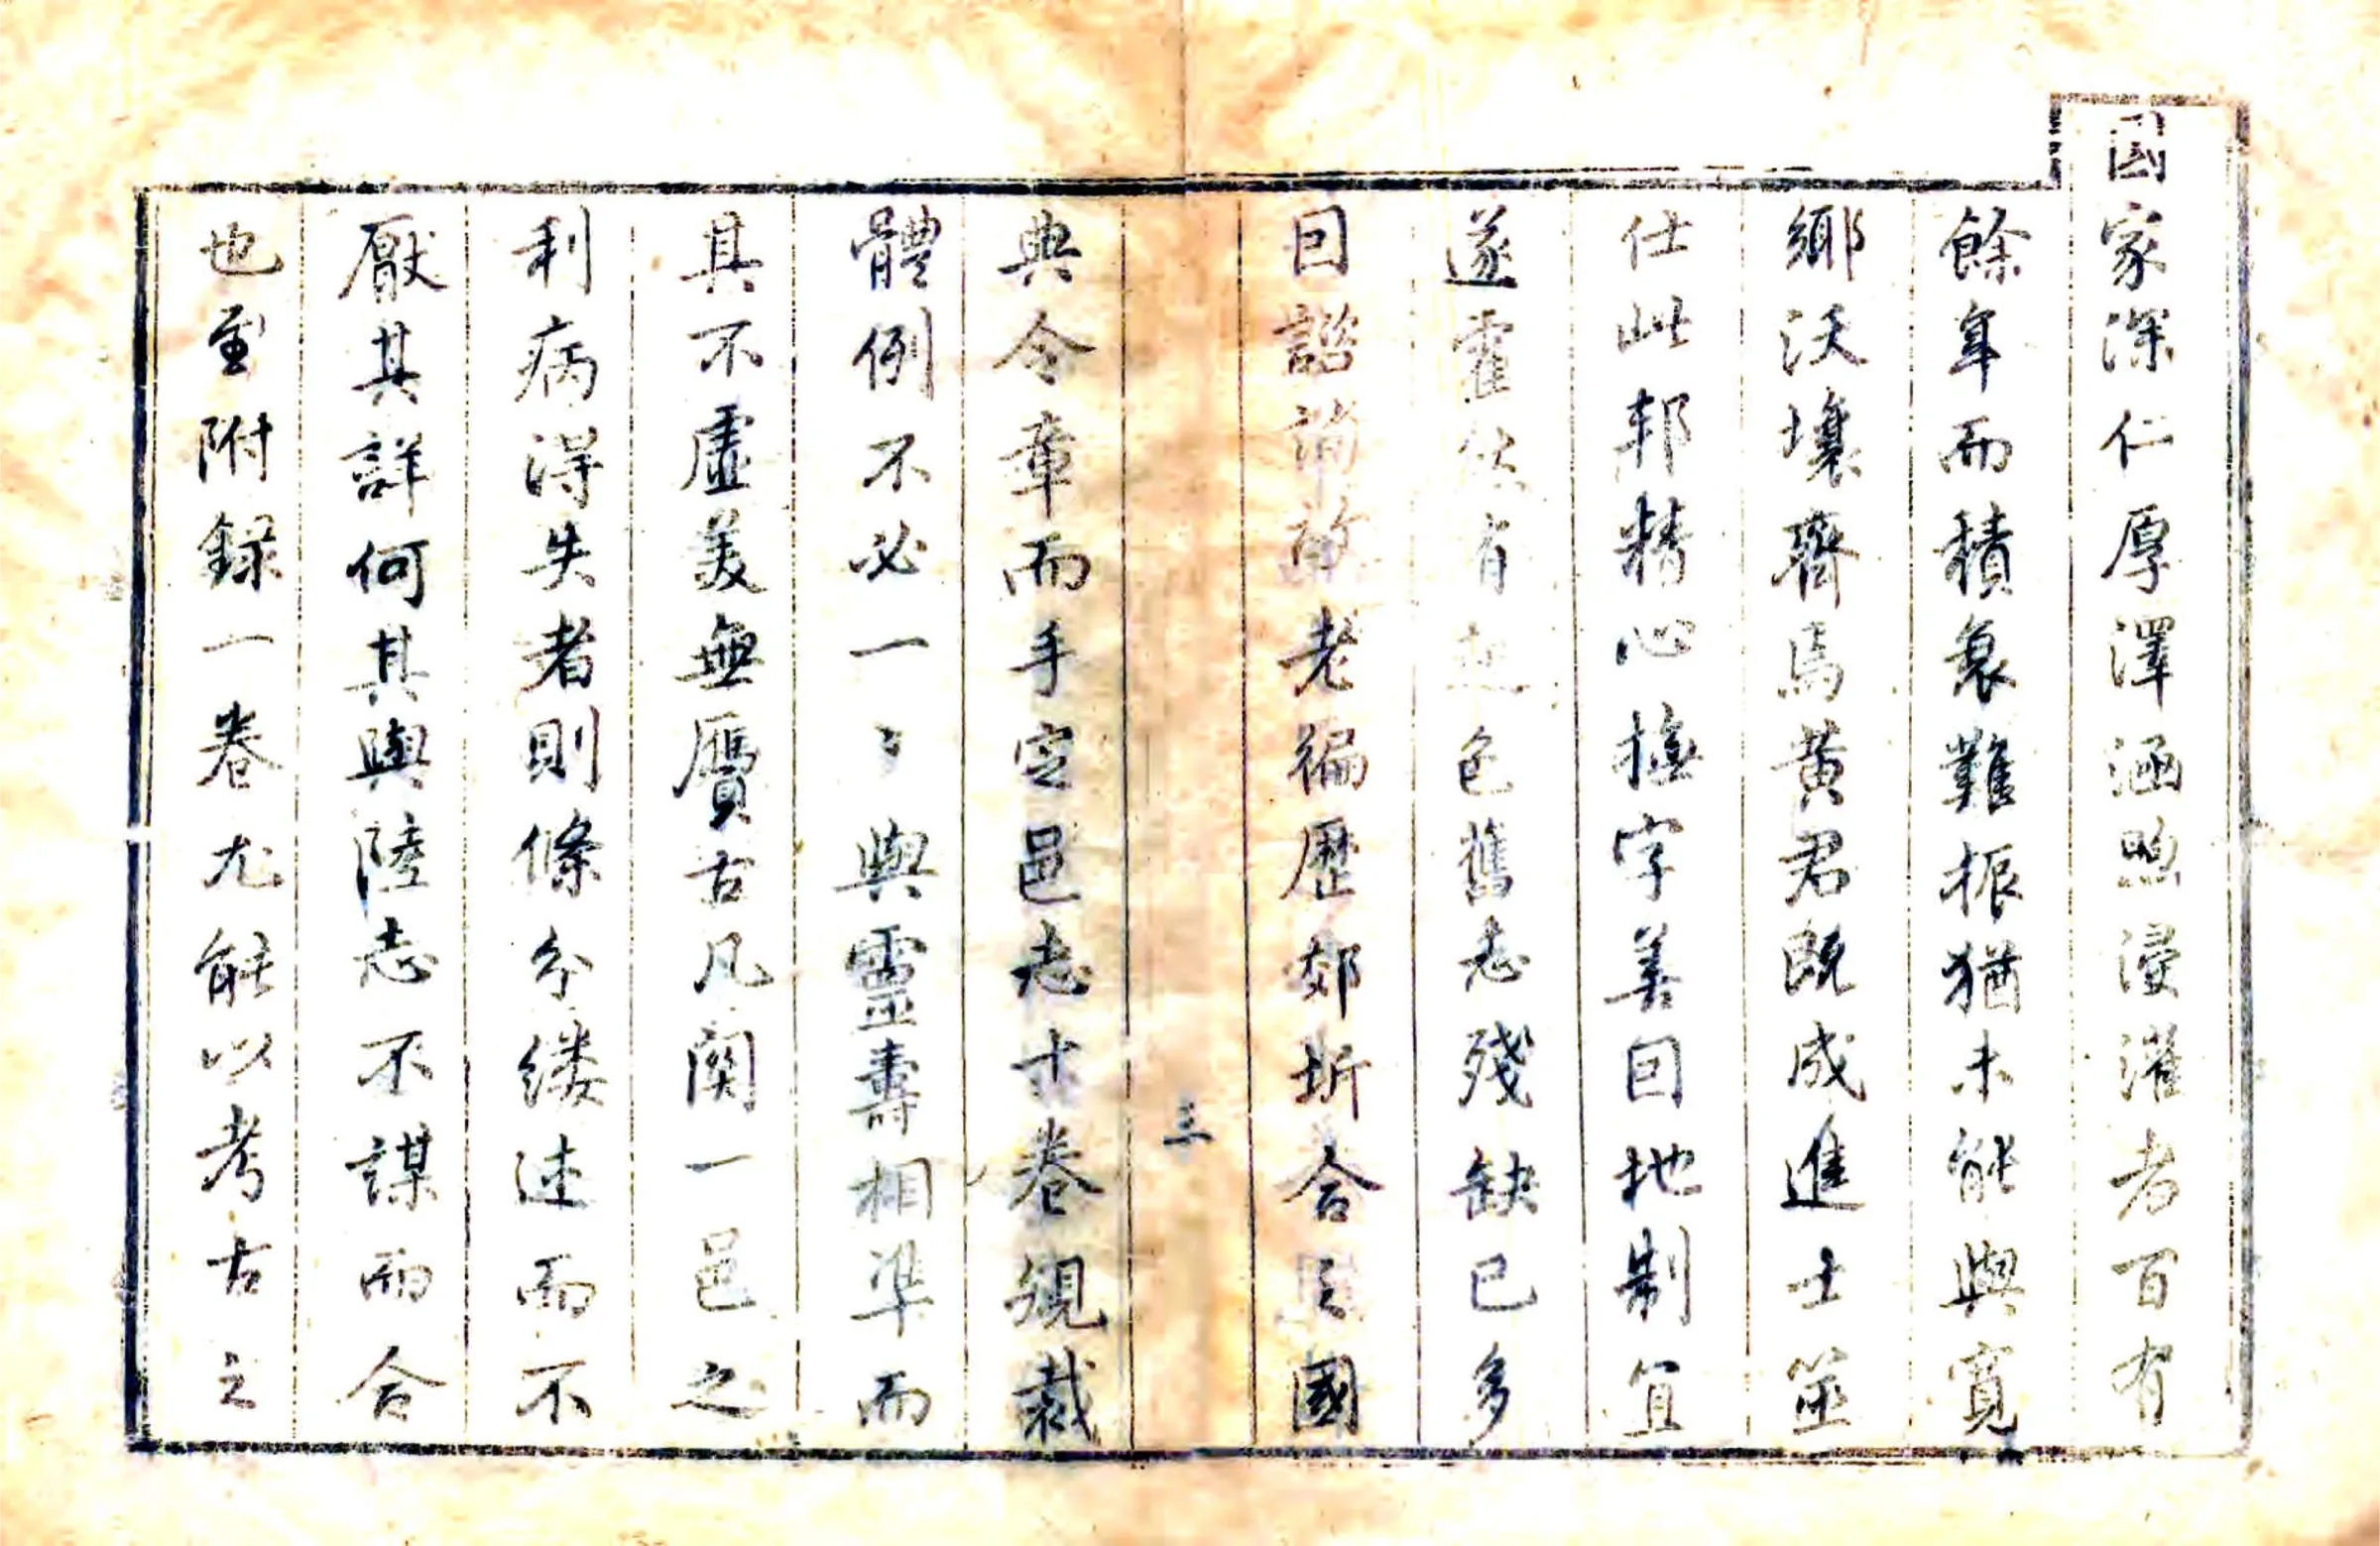 國家深仁厚澤涵煦浸灌者百有
餘年而積衰難振猶未能與寬
鄉沃壤齊焉黃君既成進士筮
仕此邦精心撫字善因地制宜
遂霍然有起色舊志殘缺已多
因諮詢故老徧歷郊圻合之國
典令章而手定邑志十卷規裁
三
體例不必一〻與靈壽相準而
其不虛美無贋古凡関一邑之
利病得失者則條分縷述而不
厭其詳何其與陸志不謀而合
也至附録一卷尤能以考古之